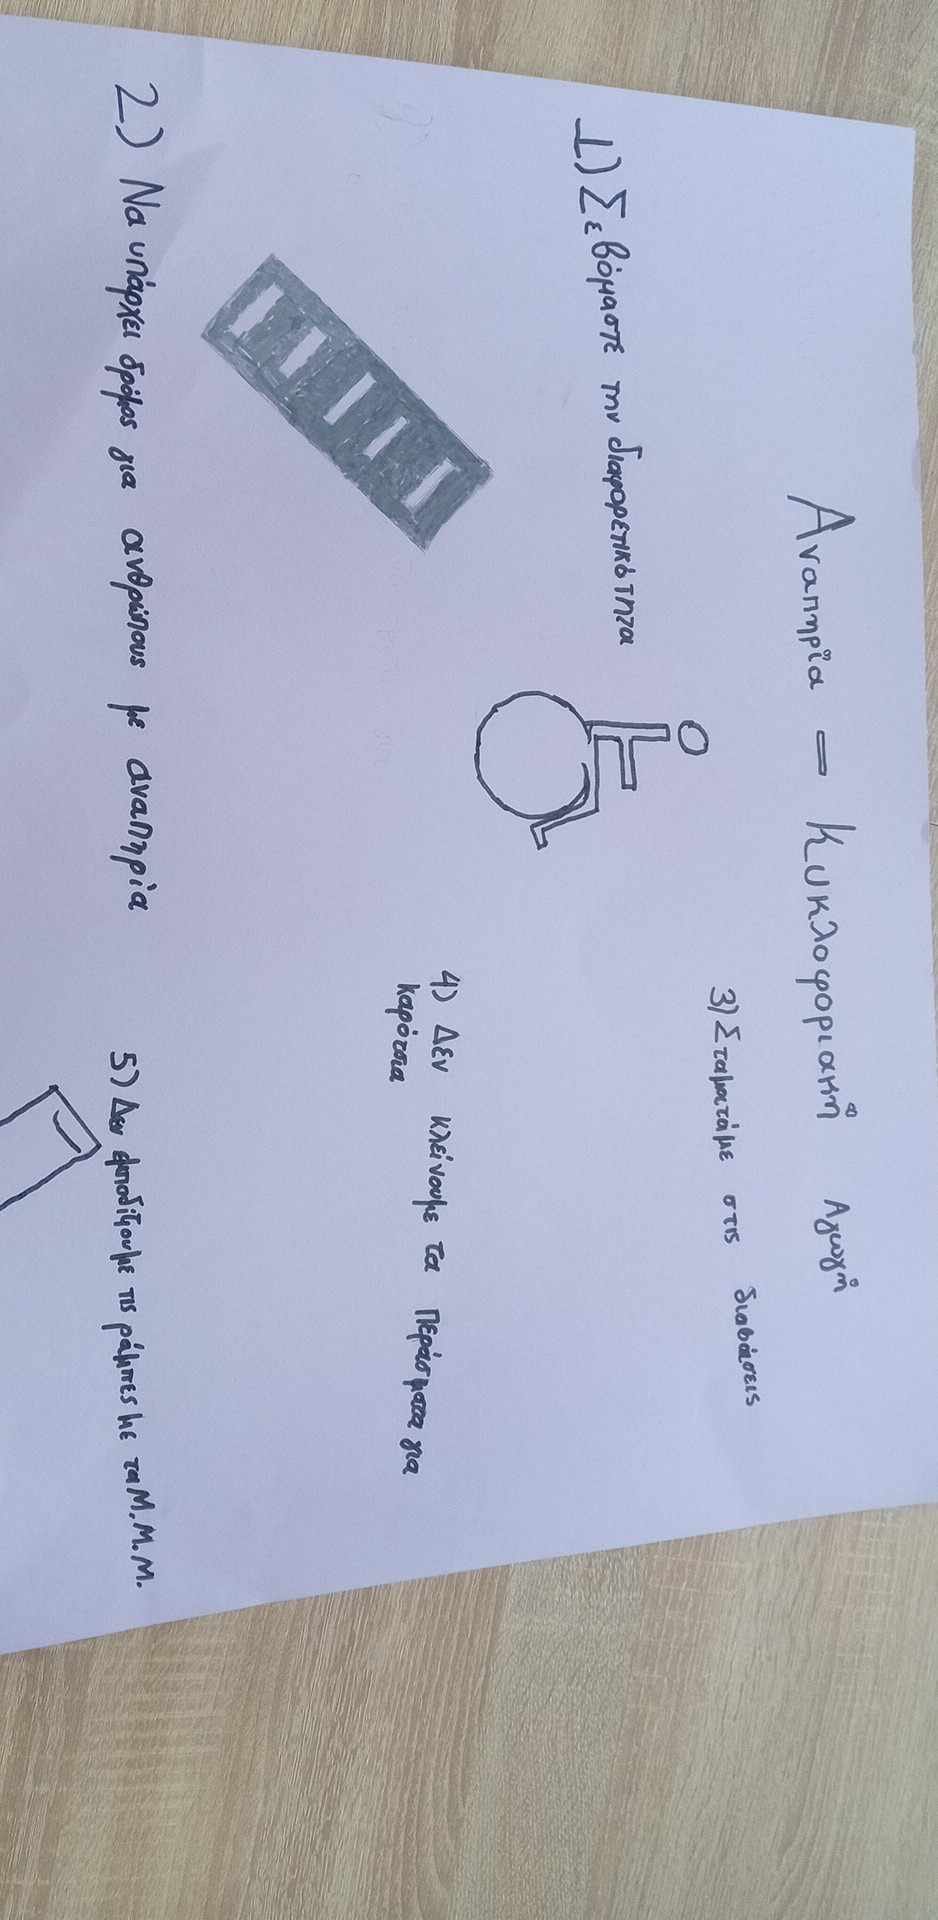 Αναπηρία - Κυκλοφοριακή Αγωγή
1) Σεβόμαστε την διαφορετικότητα
2) Να υπάρχει δρόμος για ανθρώπους με αναπηρία
3) Σταματάμε στις διαβάσεις
4) Δεν κλείνουμε τα περάσματα για
καρότσια
5) Δεν εμποδίζουμε τις ράμπες με τα Μ.Μ.Μ.